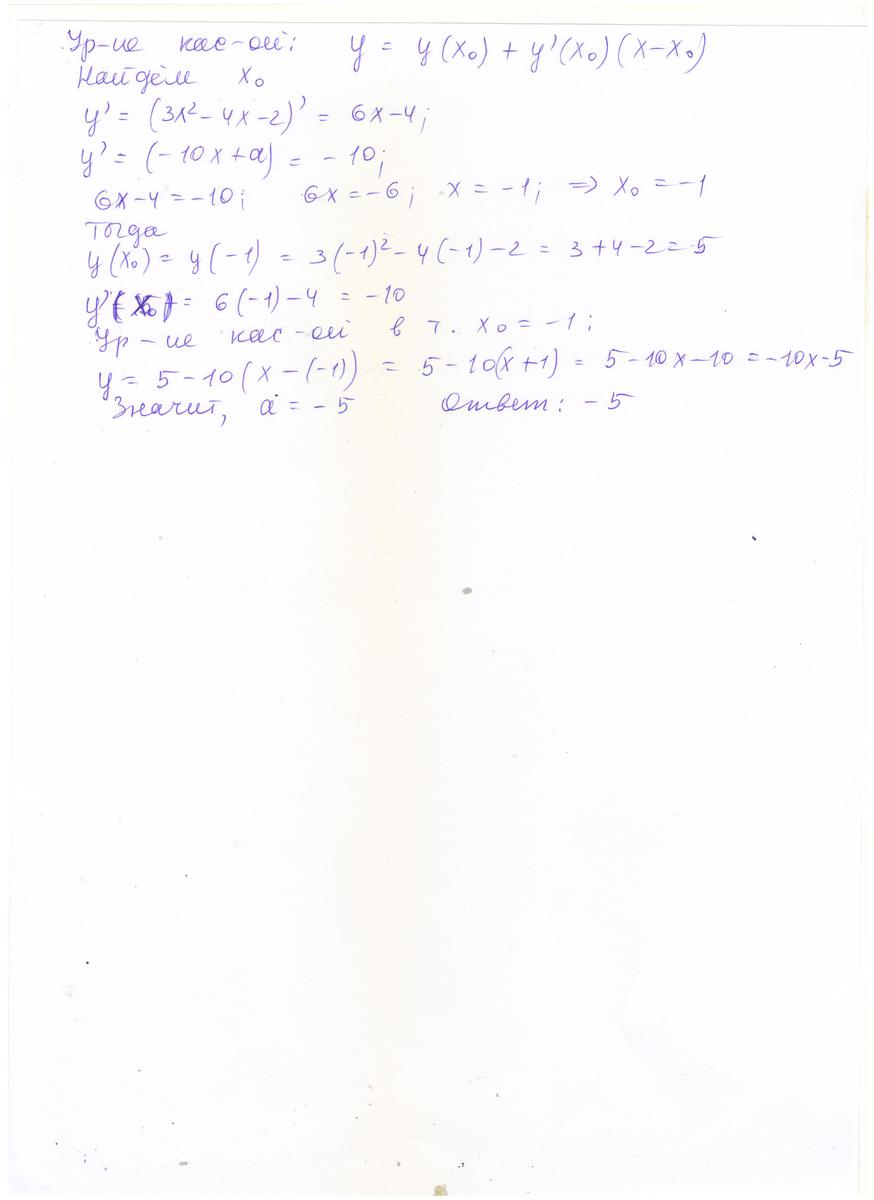 Ур-ие кас-ой: y = y(x₀) + y'(x₀)(x-x₀)
Найдём x₀
y' = (3x² - 4x - 2)' = 6x - 4;
y' = (-10x + a) = -10;
6x - 4 = -10; 6x = -6; x = -1; ⇒ x₀ = -1
Тогда
y(x₀) = y(-1) = 3(-1)² - 4(-1) - 2 = 3 + 4 - 2 = 5
y'(x₀) = 6(-1) - 4 = -10
Ур-ие кас-ой в т. x₀ = -1:
y = 5 - 10(x - (-1)) = 5 - 10(x + 1) = 5 - 10x - 10 = -10x - 5
Значит, a = -5 Ответ: -5